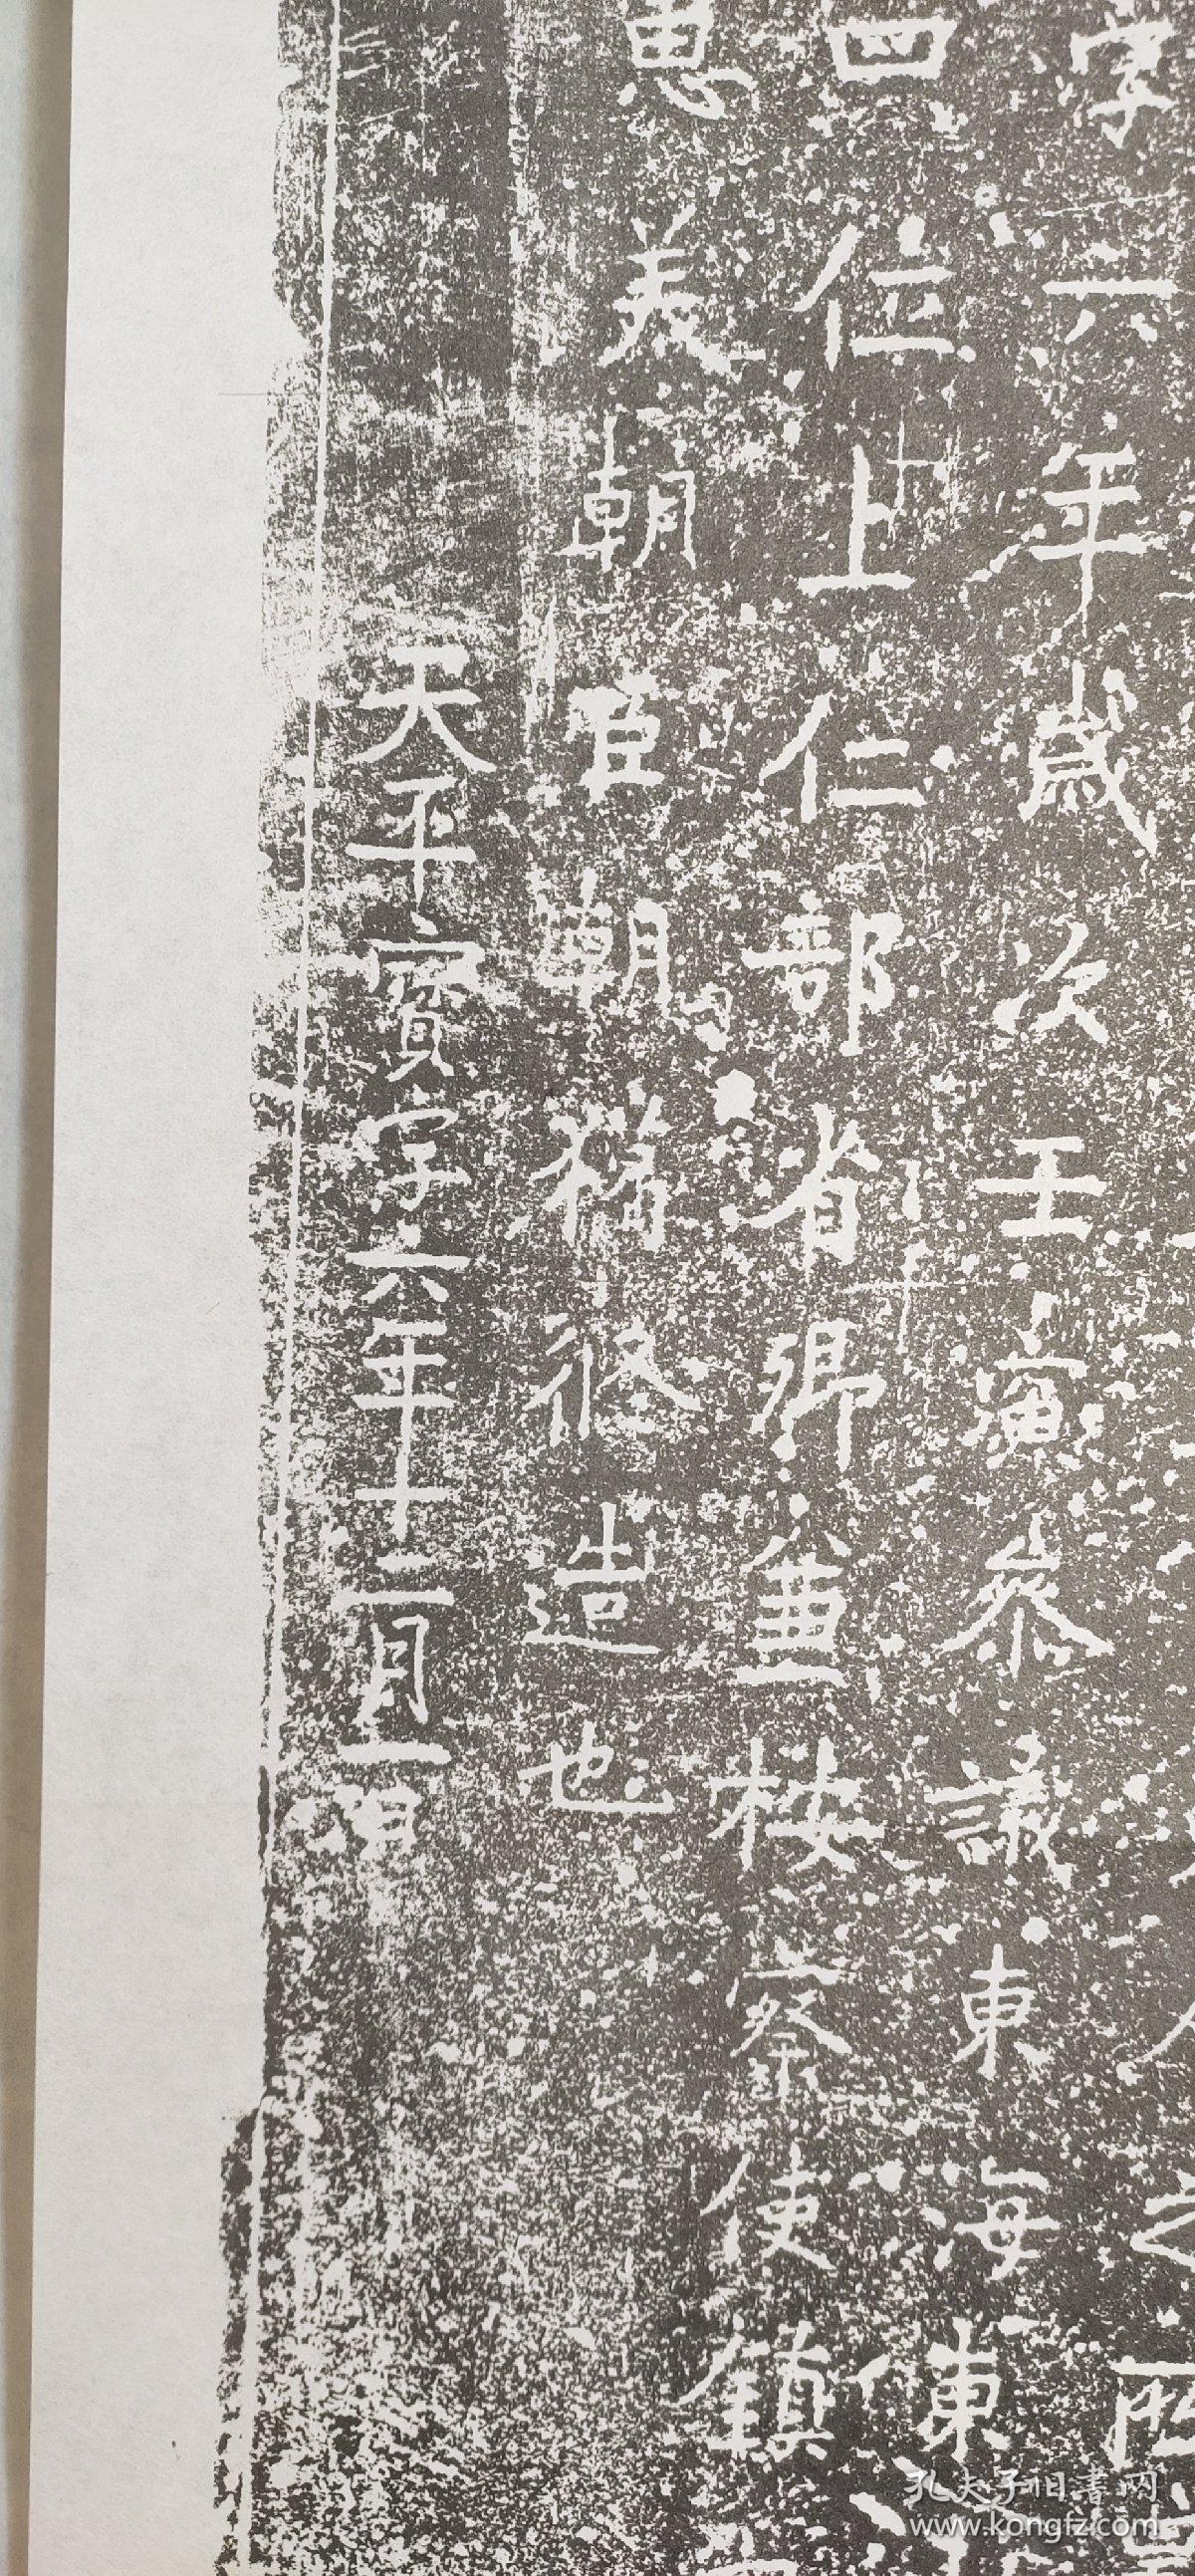 之所
字六年歲次壬寅參議東海東
四位上仁部省卿兼按察使鎮
惠美朝臣朝獦修造也
天平寶字六年十二月一日
孔夫子旧書网
www.kongfz.com